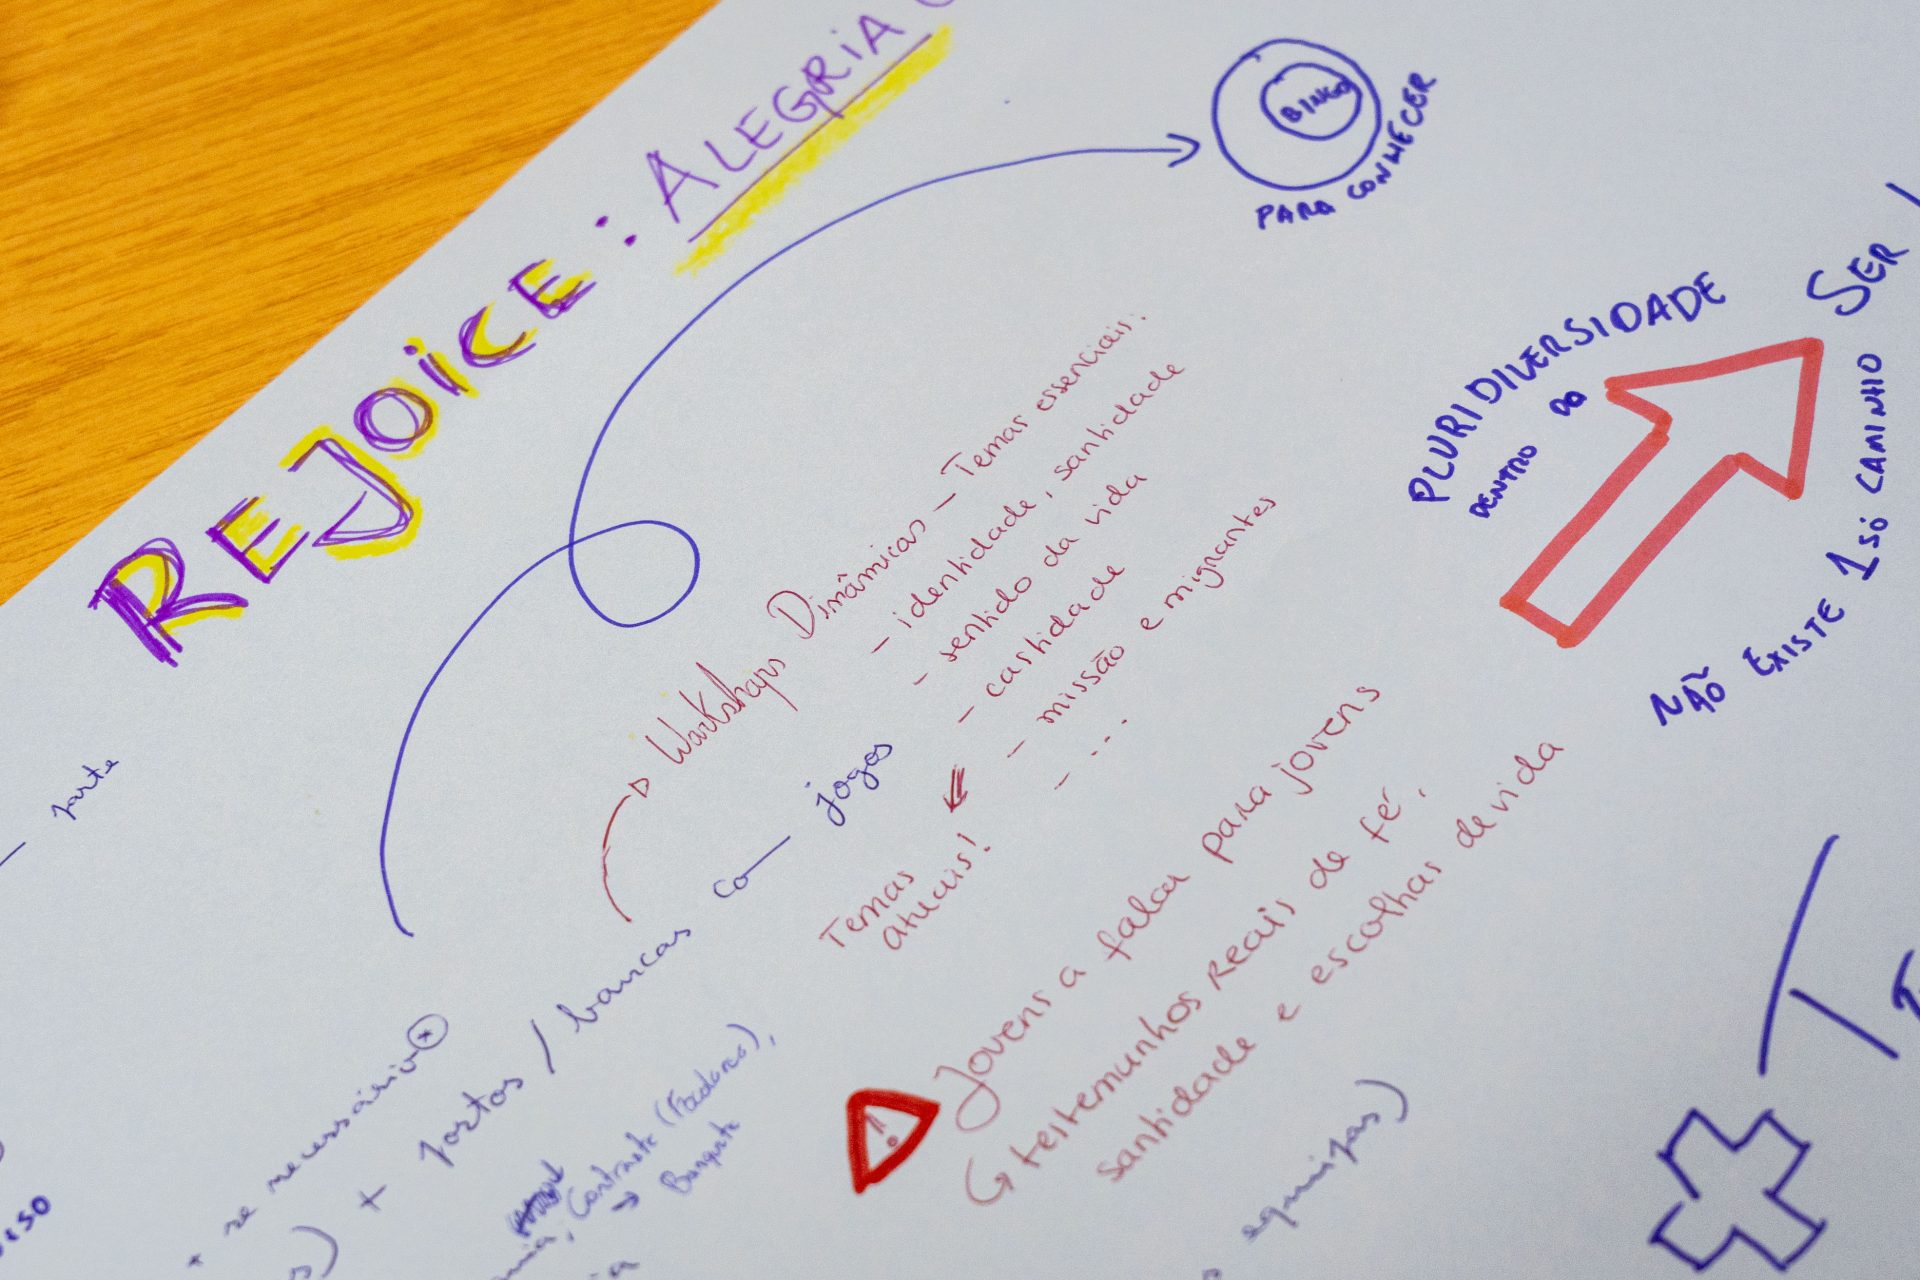 REJOICE: ALEGRIA
BINGO
PARA CONHECER
PLURIDIVERSIDADE
DENTRO DO
SER
NÃO EXISTE 1 SÓ CAMINHO
Workshops Dinâmicos – Temas essenciais:
– identidade, santidade
– sentido da vida
– castidade
– missão e migrantes
– ...
Temas
atuais!
jogos
parte
se necessário *
+ postos / bancas
Contraste
→ Banquete
! Jovens a falar para jovens
testemunhos reais de fé,
santidade e escolhas de vida
equipas)